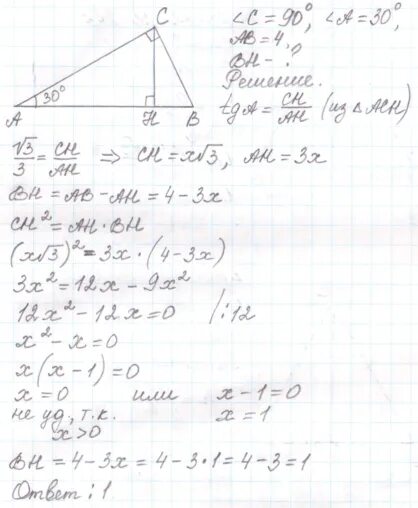 C
30°
A H B
∠C = 90°, ∠A = 30°,
AB = 4,
BH - ?
Решение.
tg A = CH/AH (из △ACH)
√3/3 = CH/AH ⇒ CH = x√3, AH = 3x
BH = AB - AH = 4 - 3x
CH² = AH · BH
(x√3)² = 3x · (4 - 3x)
3x² = 12x - 9x²
12x² - 12x = 0 /:12
x² - x = 0
x(x - 1) = 0
x = 0 или x - 1 = 0
не уд., т.к. x = 1
x > 0
BH = 4 - 3x = 4 - 3·1 = 4 - 3 = 1
Ответ: 1